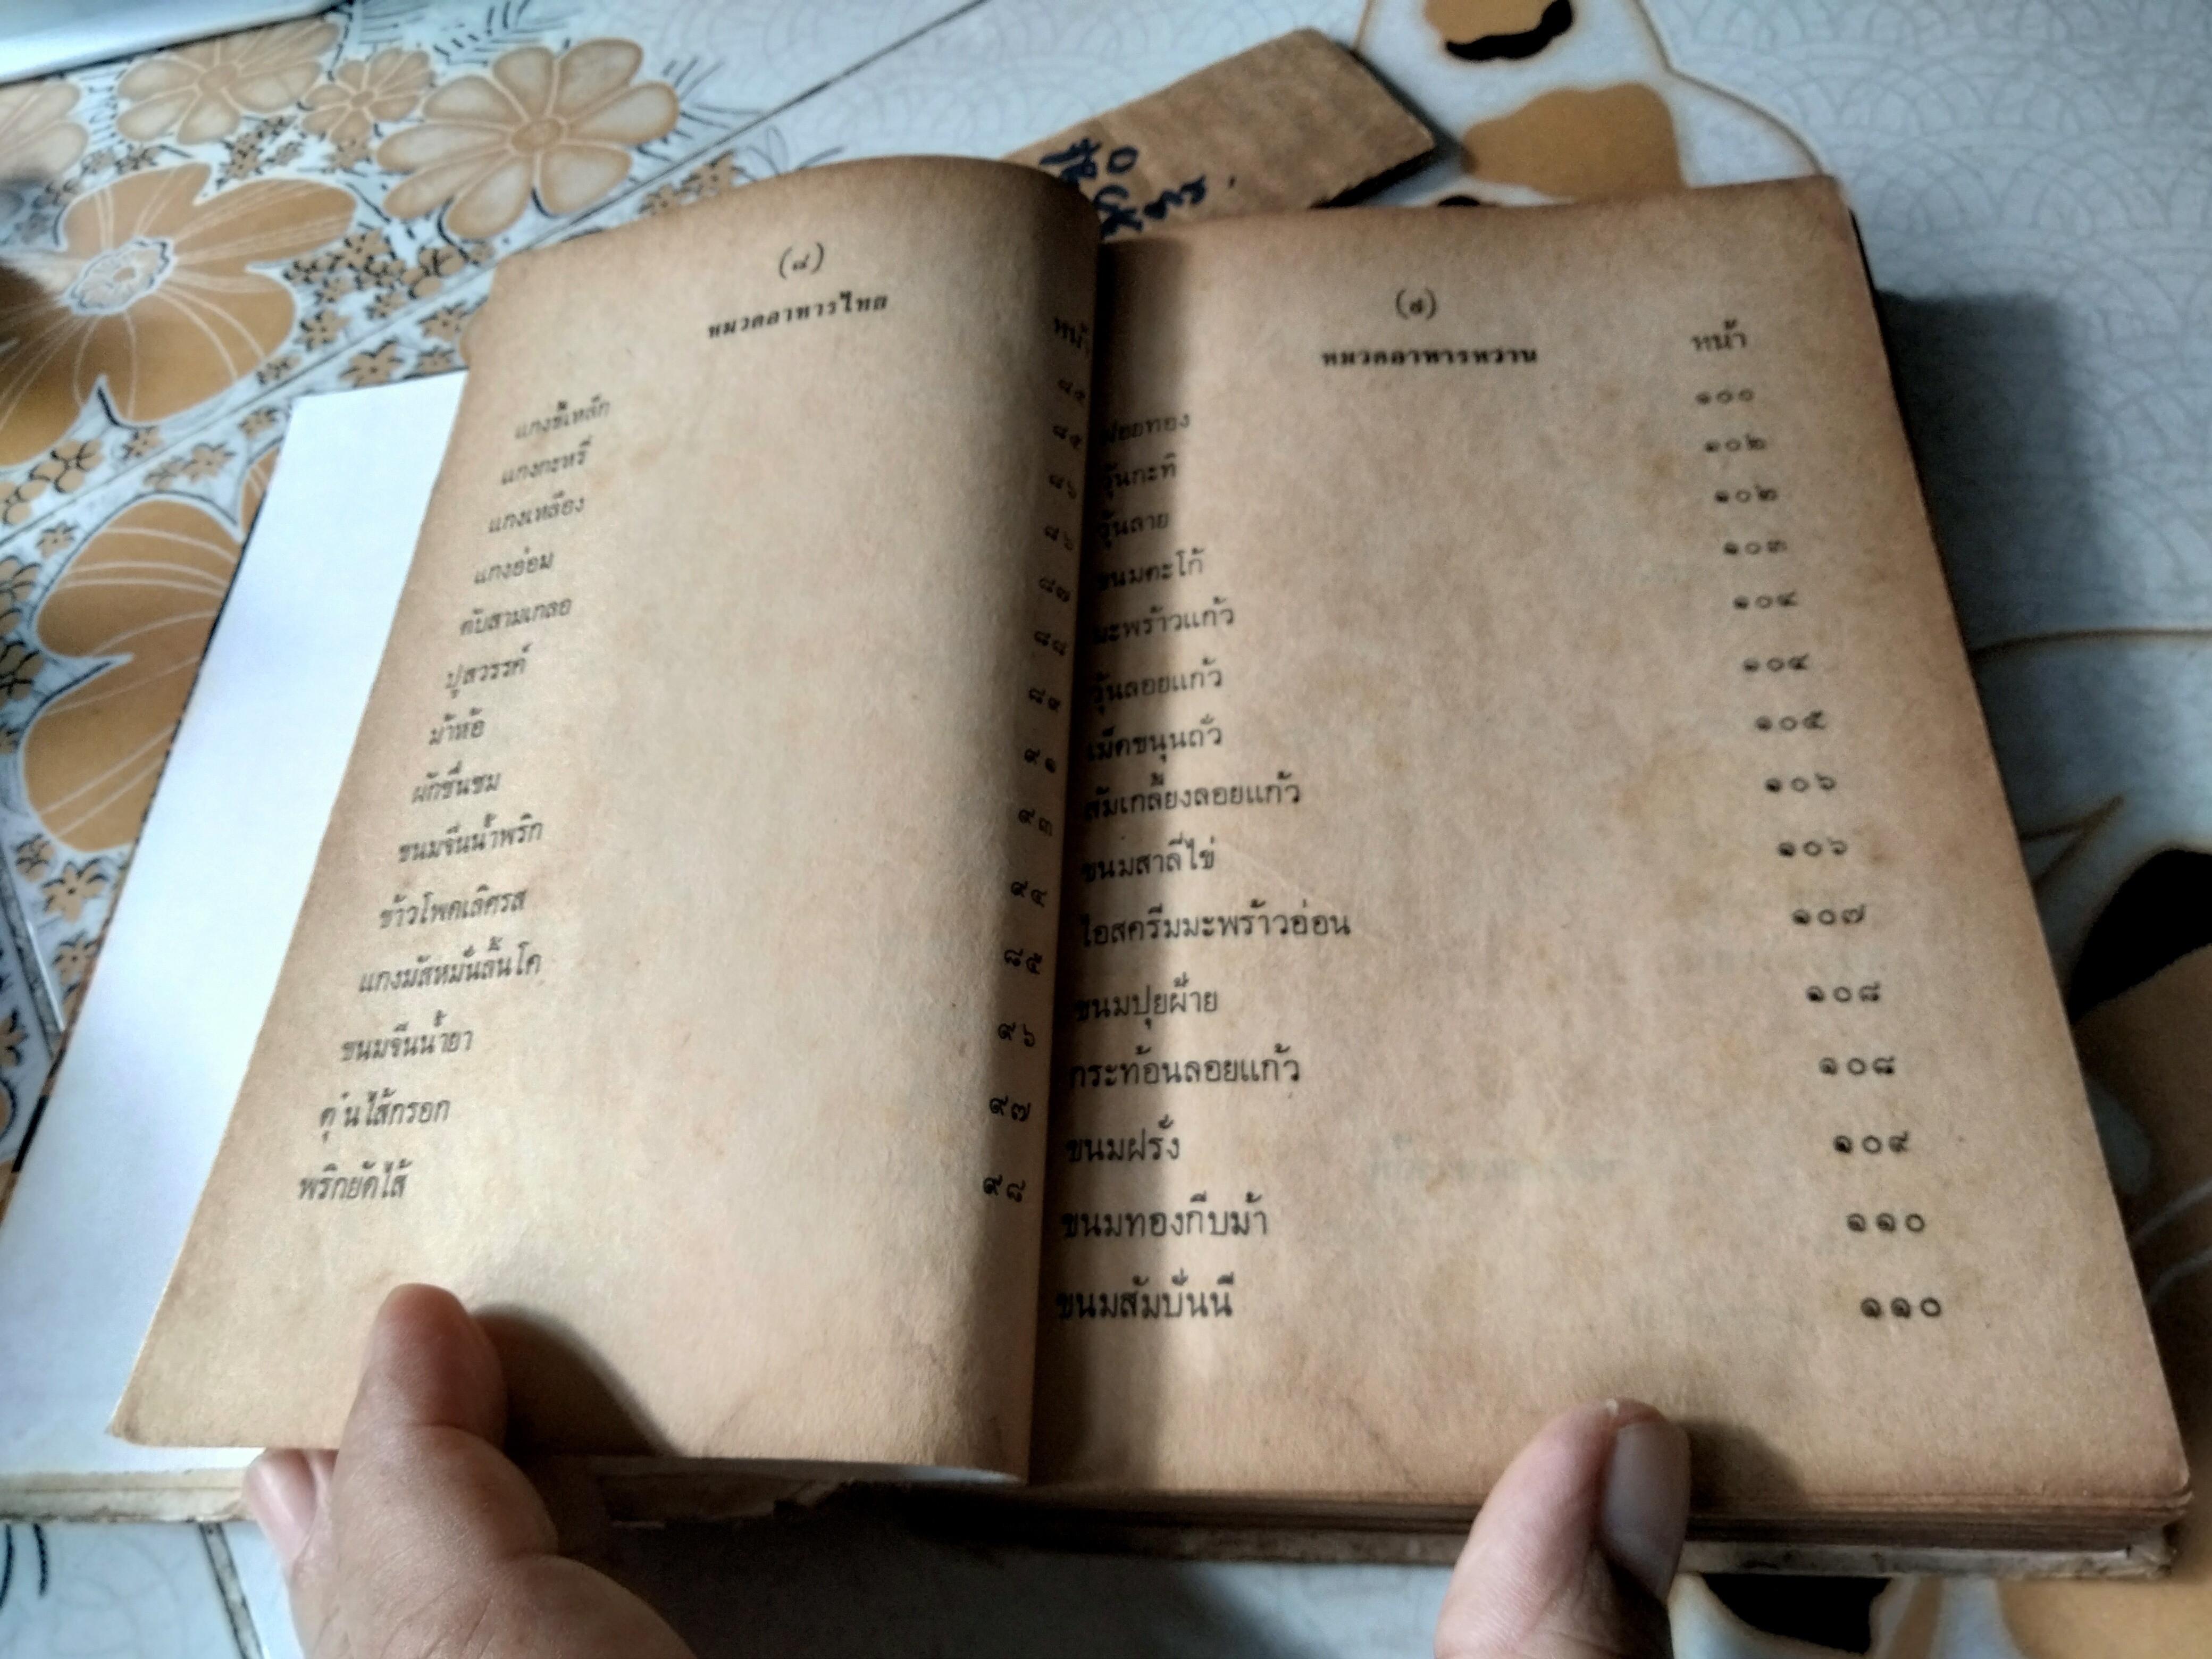 (๘)
หมวดอาหารไทย
หน้า
แกงขี้เหล็ก ๘๕
แกงกะหรี่ ๘๕
แกงเหลือง ๘๖
แกงอ่อม ๘๖
ตับสามเกลอ ๘๗
ปูสวรรค์ ๘๘
ม้าห้อ ๘๙
ผักชื่นชม ๙๑
ขนมจีนน้ำพริก ๙๓
ข้าวโพดเลิศรส ๙๔
แกงมัสหมั่นลิ้นโค
ขนมจีนน้ำยา ๙๖
ตุ๋นไส้กรอก ๙๗
พริกยัดไส้ ๙๘
(๙)
หมวดอาหารหวาน
หน้า
ฝอยทอง ๑๐๐
วุ้นกะทิ ๑๐๒
วุ้นลาย ๑๐๒
ขนมตะโก้ ๑๐๓
มะพร้าวแก้ว ๑๐๔
วุ้นลอยแก้ว ๑๐๔
เม็ดขนุนถั่ว ๑๐๕
ส้มเกลี้ยงลอยแก้ว ๑๐๖
ขนมสาลี่ไข่ ๑๐๖
ไอสครีมมะพร้าวอ่อน ๑๐๗
ขนมปุยฝ้าย ๑๐๘
กระท้อนลอยแก้ว ๑๐๘
ขนมฝรั่ง ๑๐๙
ขนมทองกีบม้า ๑๑๐
ขนมสัมบันนี ๑๑๐